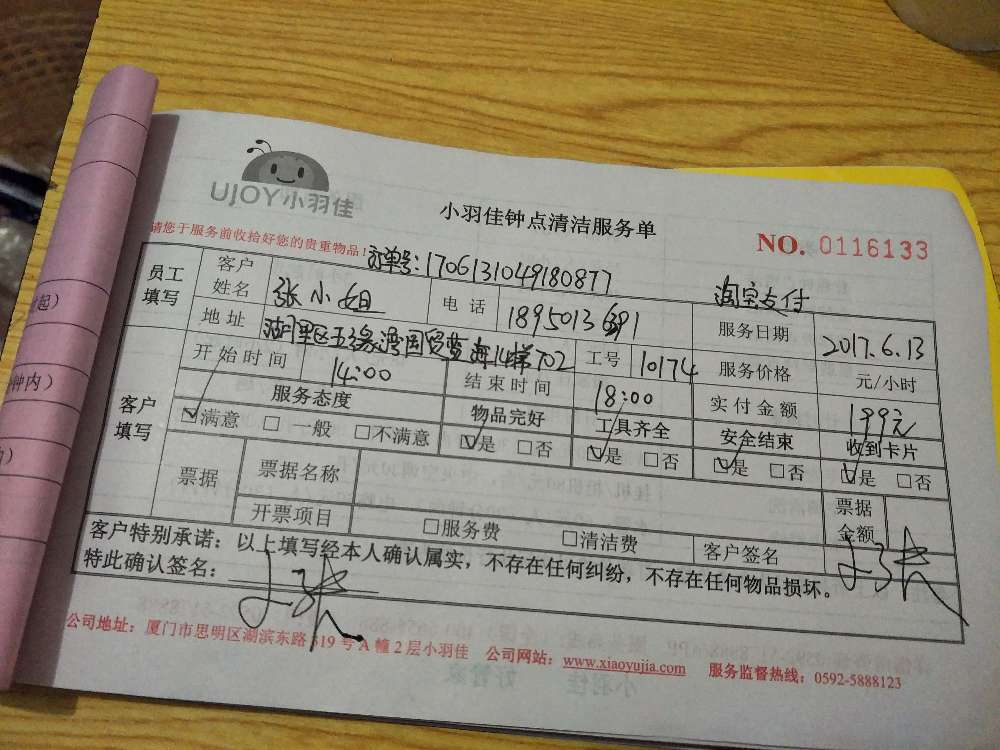 UJOY小羽佳
小羽佳钟点清洁服务单
NO. 0116133
请您于服务前收拾好您的贵重物品!
订单号:1706131049180877
淘宝支付
员工填写 客户姓名 张小姐 电话 1895013 服务日期 2017.6.13
地址 湖里区五缘湾国贸蓝海14梯702 工号 10174 服务价格 元/小时
开始时间 14:00 结束时间 18:00 实付金额 199元
客户填写 服务态度 物品完好 工具齐全 安全结束 收到卡片
☑满意 □一般 □不满意 ☑是 □否 ☑是 □否 ☑是 □否 ☑是 □否
票据 票据名称 票据金额
开票项目 □服务费 □清洁费 客户签名
客户特别承诺:以上填写经本人确认属实,不存在任何纠纷,不存在任何物品损坏。
特此确认签名:
公司地址:厦门市思明区湖滨东路319号A幢2层小羽佳 公司网站:www.xiaoyujia.com 服务监督热线:0592-5888123
起)
钟内)